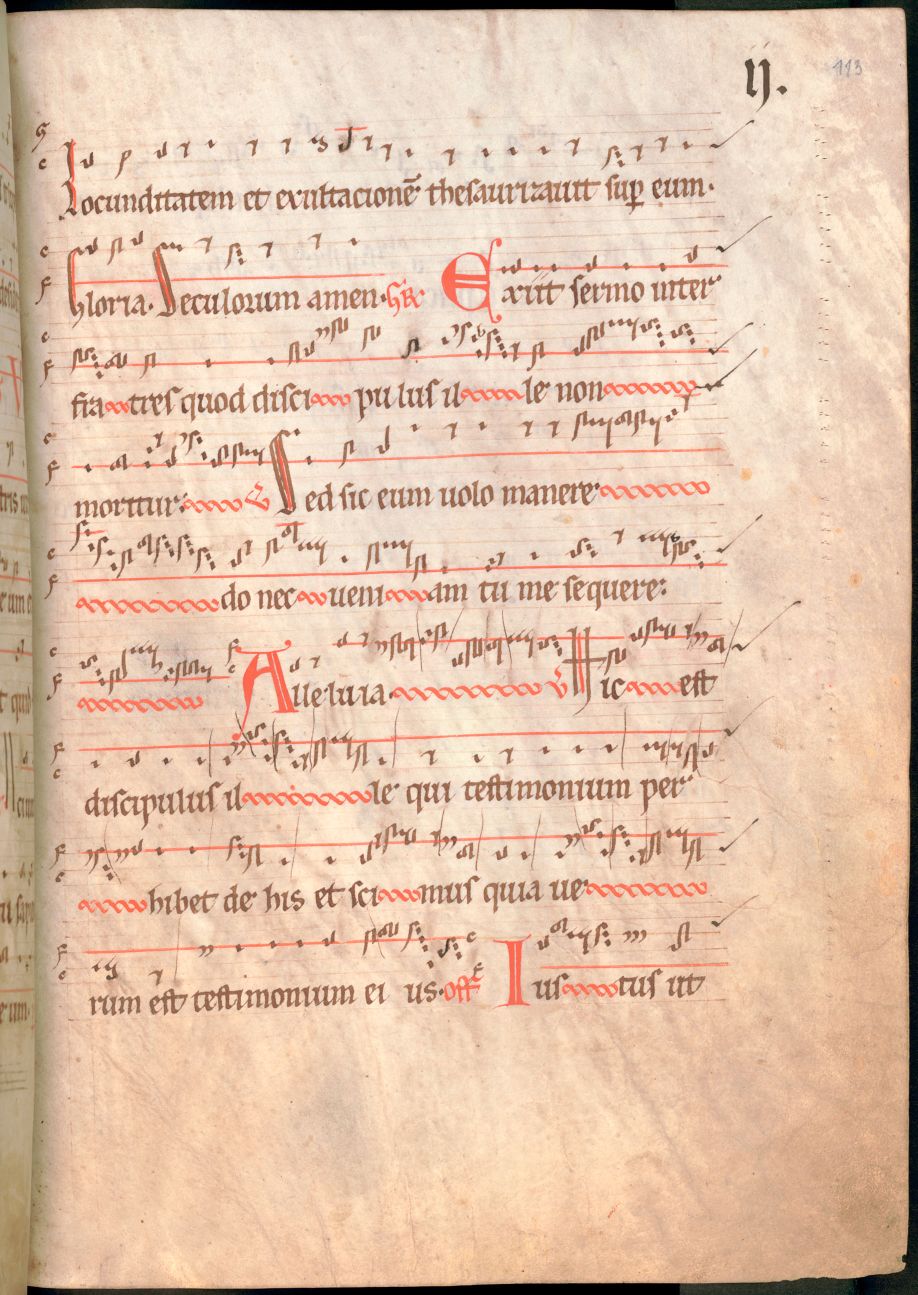 ij. 113
Iocunditatem et exultacionē thesaurizauit sup eum.
Gloria. Seculorum amen. GR Exiit sermo inter
fratres quod disci pulus il le non
moritur: V Sed sic eum uolo manere
do nec ueni am tu me sequere:
Alleluia V Hic est
discipulus il le qui testimonium per
hibet de his et sci mus quia ue
rum est testimonium ei us. off Ius tus ut